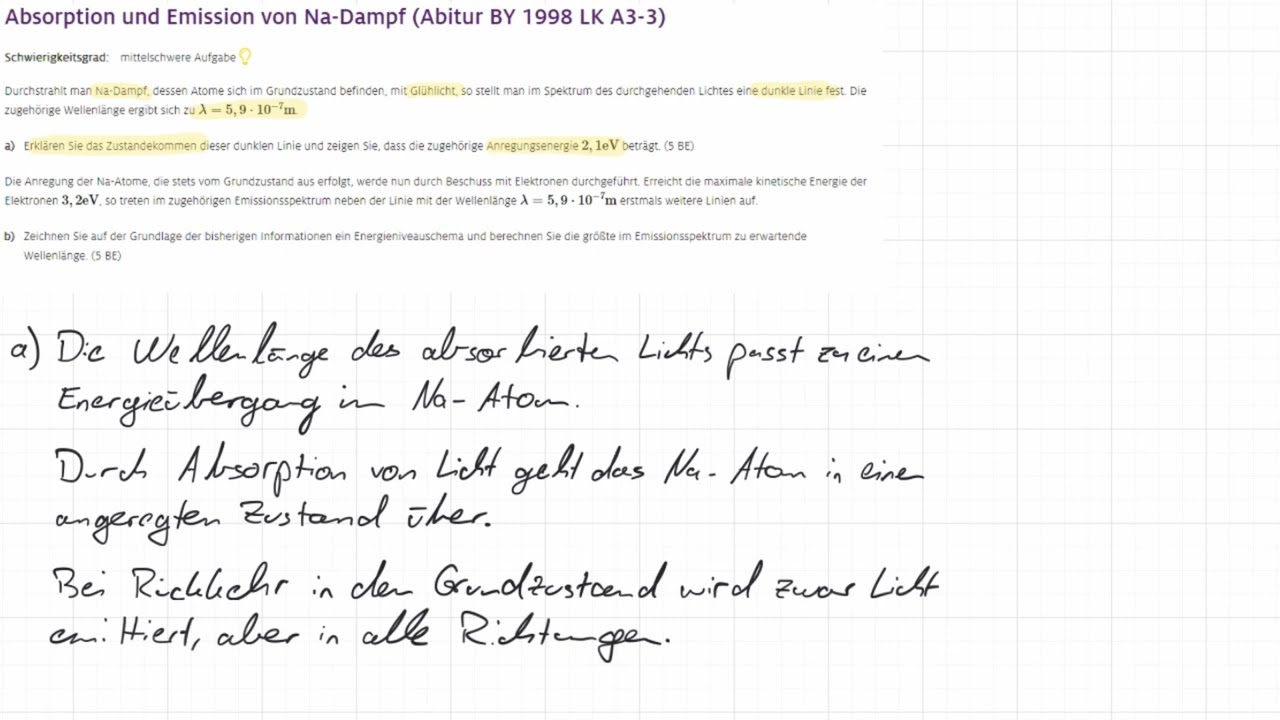 Absorption und Emission von Na-Dampf (Abitur BY 1998 LK A3-3)
Schwierigkeitsgrad: mittelschwere Aufgabe
Durchstrahlt man Na-Dampf, dessen Atome sich im Grundzustand befinden, mit Glühlicht, so stellt man im Spektrum des durchgehenden Lichtes eine dunkle Linie fest. Die
zugehörige Wellenlänge ergibt sich zu λ = 5,9 · 10⁻⁷m.
a) Erklären Sie das Zustandekommen dieser dunklen Linie und zeigen Sie, dass die zugehörige Anregungsenergie 2,1eV beträgt. (5 BE)
Die Anregung der Na-Atome, die stets vom Grundzustand aus erfolgt, werde nun durch Beschuss mit Elektronen durchgeführt. Erreicht die maximale kinetische Energie der
Elektronen 3,2eV, so treten im zugehörigen Emissionsspektrum neben der Linie mit der Wellenlänge λ = 5,9 · 10⁻⁷m erstmals weitere Linien auf.
b) Zeichnen Sie auf der Grundlage der bisherigen Informationen ein Energieniveauschema und berechnen Sie die größte im Emissionsspektrum zu erwartende
Wellenlänge. (5 BE)
a) Die Wellenlänge des absorbierten Lichts passt zu einen
Energieübergang im Na-Atom.
Durch Absorption von Licht geht das Na-Atom in einen
angeregten Zustand über.
Bei Rückkehr in den Grundzustand wird zwar Licht
emittiert, aber in alle Richtungen.